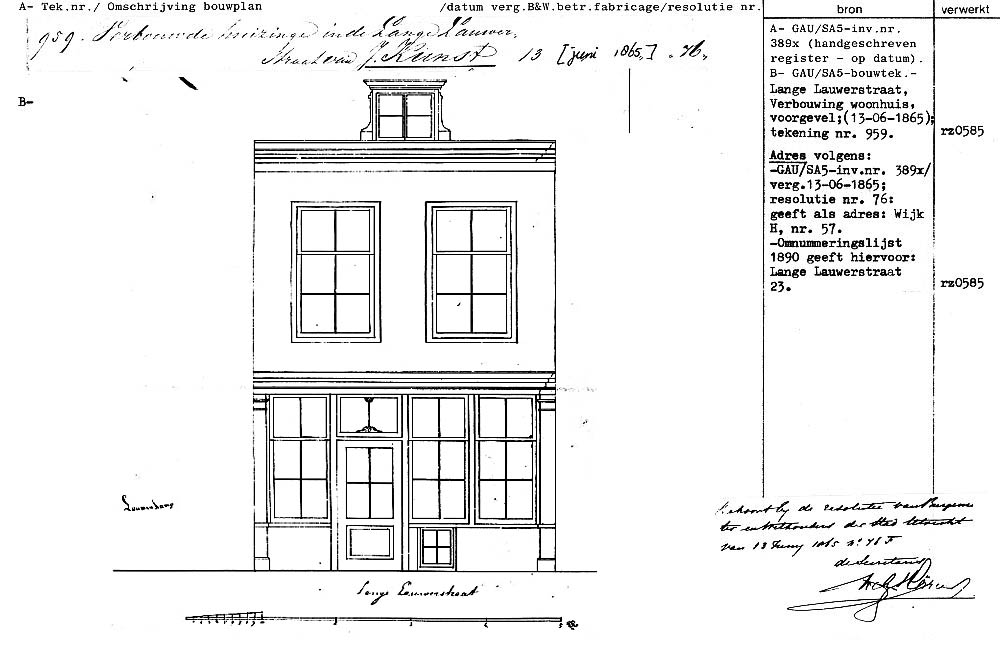 A- Tek.nr./ Omschrijving bouwplan /datum verg.B&W.betr.fabricage/resolutie nr.
959. Verbouwde huizinge in de Lange Lauwer.
Straat van J. Kunst 13 [juni 1865,] . 76,
B-
bron
verwerkt
A- GAU/SA5-inv.nr.
389x (handgeschreven
register - op datum).
B- GAU/SA5-bouwtek.-
Lange Lauwerstraat,
Verbouwing woonhuis,
voorgevel;(13-06-1865);
tekening nr. 959.
rz0585
Adres volgens:
-GAU/SA5-inv.nr. 389x/
verg.13-06-1865;
resolutie nr. 76:
geeft als adres: Wijk
H, nr. 57.
-Omnummeringslijst
1890 geeft hiervoor:
Lange Lauwerstraat
23.
rz0585
Behoort bij de resolutie van Burgemees
ter en Wethouders der Stad Utrecht
van 13 Juny 1865 No. 76 F
de Secretaris
Lange Lauwerstraat
1 2 3 4 5